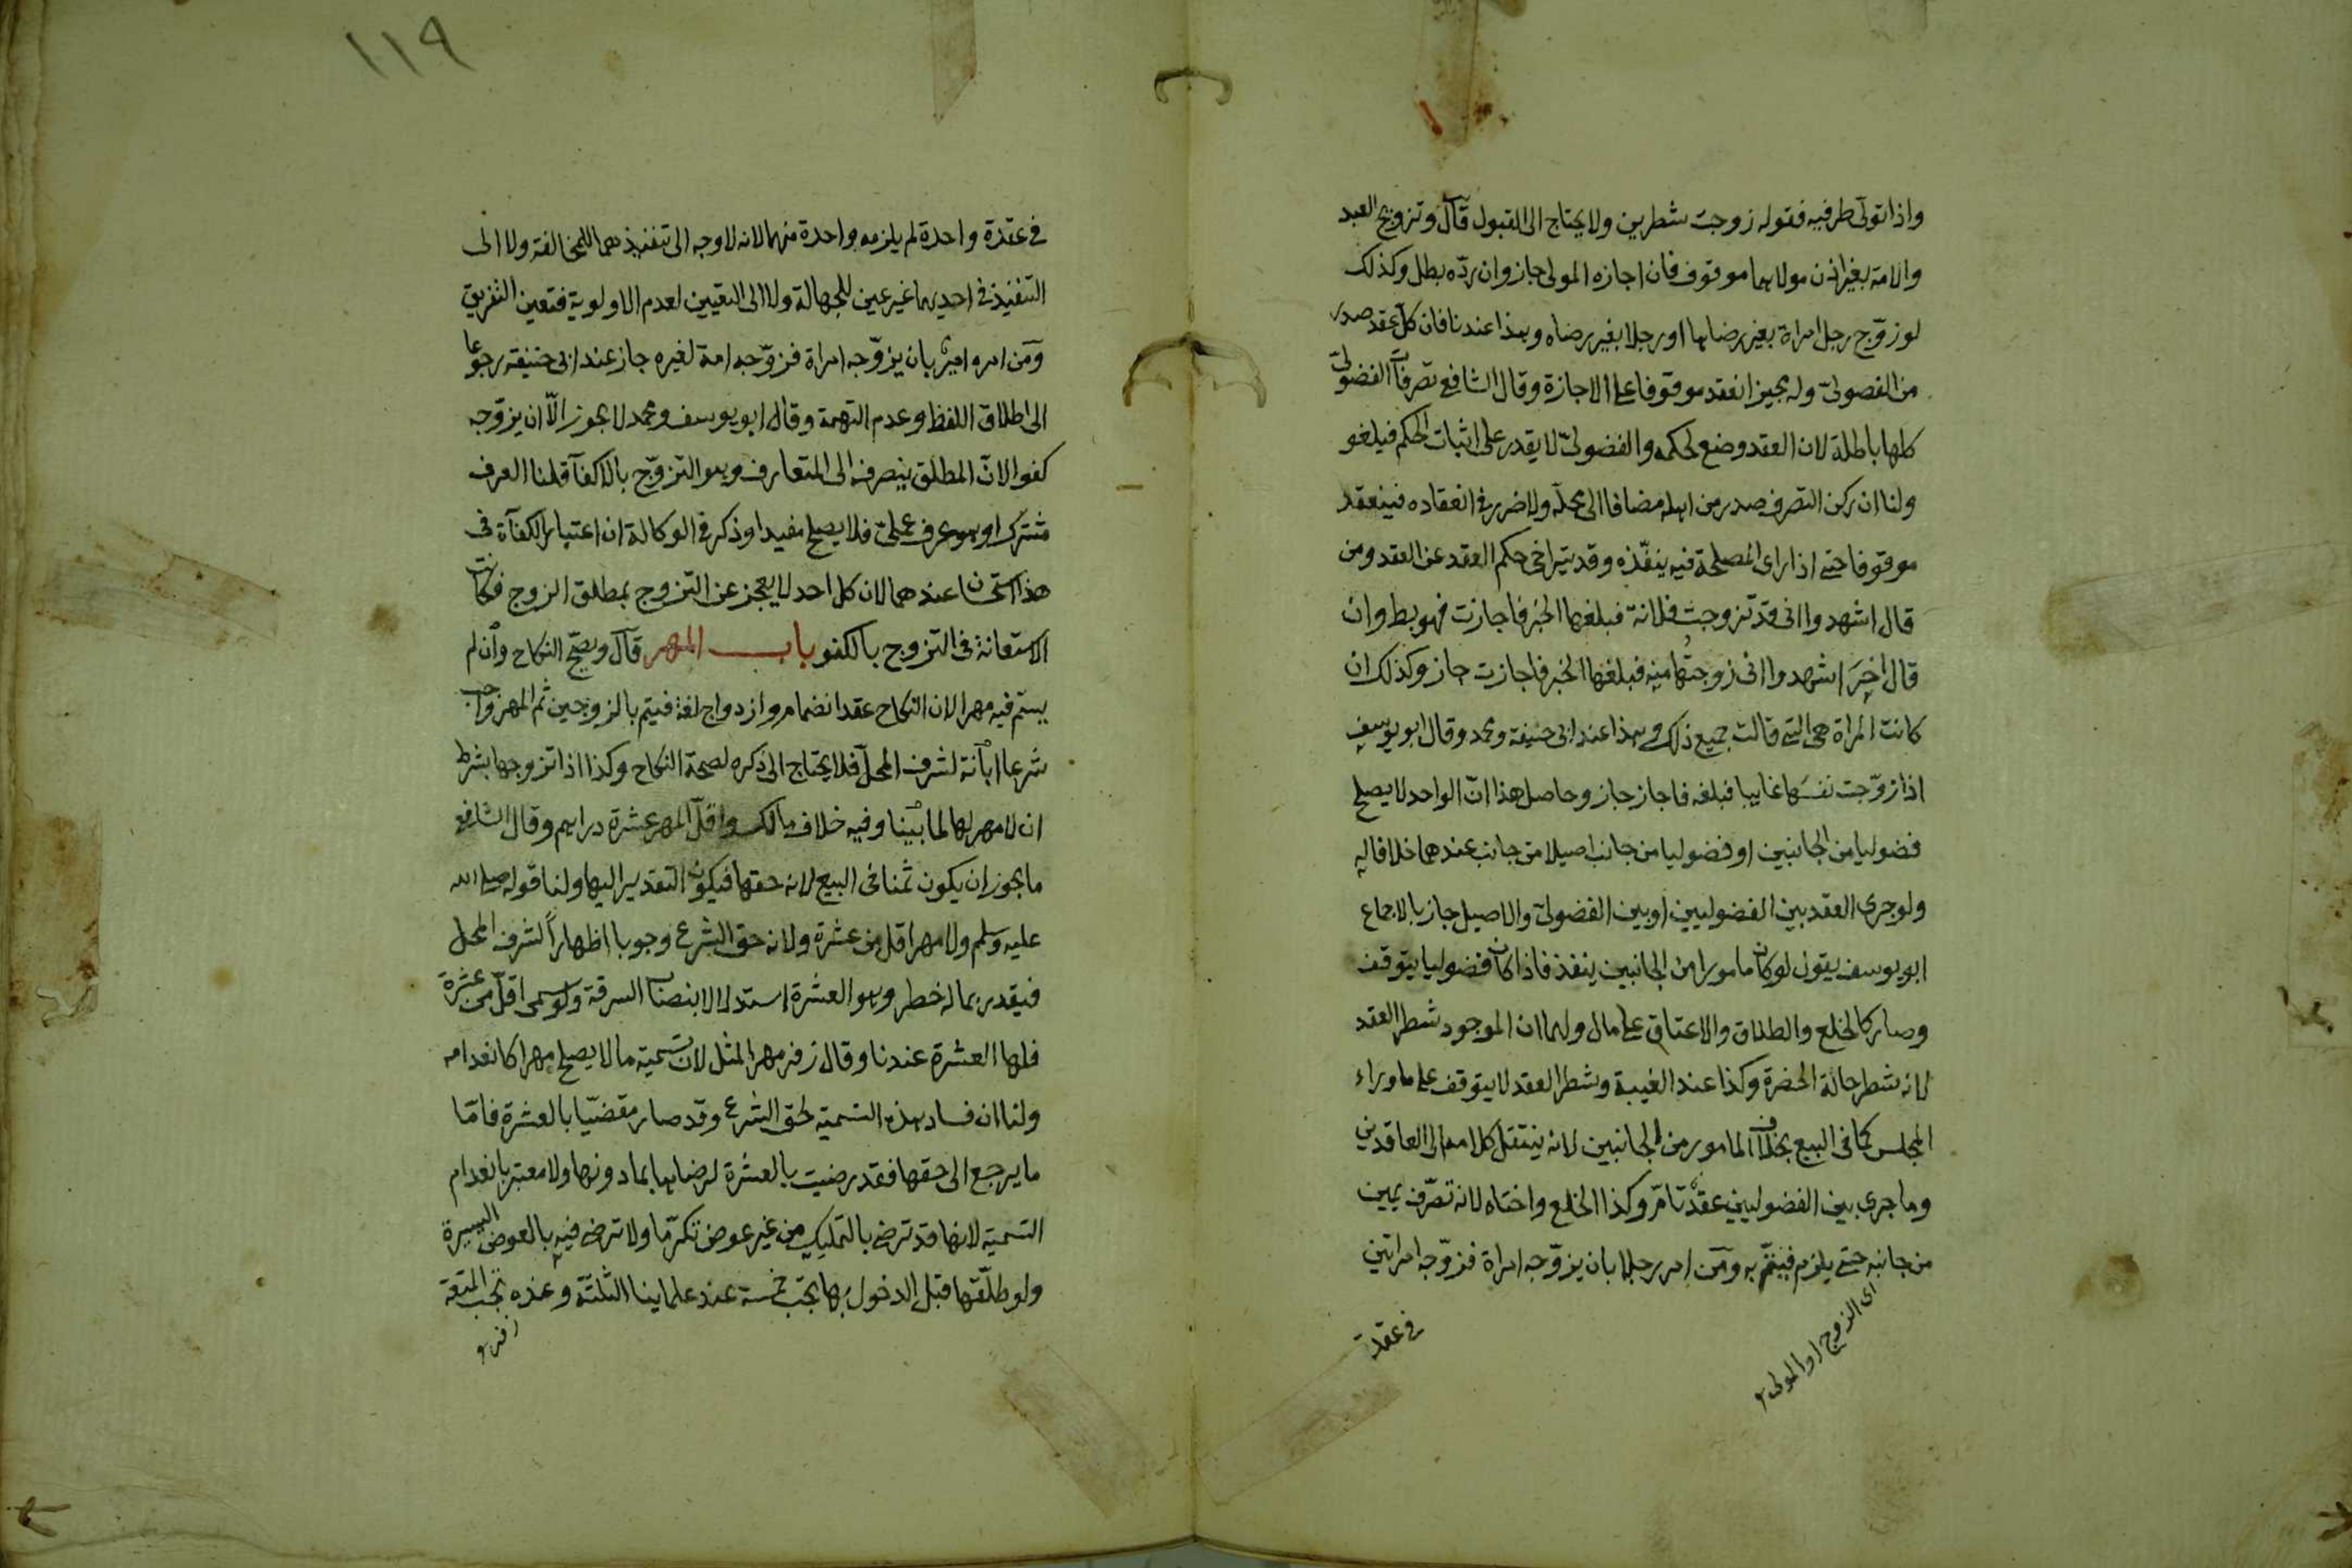 واذا تولى طرفيه فقوله زوجت شطرين ولا يحتاج الى القبول قال وتزويج العبد
والامة بغير اذن مولاهما موقوف فان اجازه المولى جاز وان ردّه بطل وكذلك
لو زوّج رجل امراة بغير رضاها او رجلا بغير رضاه وهذا عندنا فان كل عقد صدر
من الفضولىّ وله مجيز انعقد موقوفا على الاجازة وقال الشافعى تصرفات الفضولىّ
كلها باطلة لان العقد وضع لحكمه والفضولىّ لا يقدر على اثبات الحكم فيلغو
ولنا ان ركن التصرف صدر من اهله مضافا الى محلّه ولا ضرر فى انعقاده فينعقد
موقوفا حتى اذا راى المصلحة فيه ينفّذه وقد يتراخى حكم العقد عن العقد ومن
قال اشهدوا انى قد تزوجت فلانة فبلغها الخبر فاجازت فهو بط وان
قال اخر اشهدوا انى زوجتها منه فبلغها الخبر فاجازت جاز وكذلك ان
كانت المراة هى التى قالت جميع ذلك وهذا عند ابى حنيفة ومحمد وقال ابو يوسف
اذا زوّجت نفسها غايبا فبلغه فاجاز جاز وحاصل هذا انّ الواحد لا يصلح
فضوليا من الجانبين او فضوليا من جانب اصيلا من جانب عندهما خلافا له
ولو جرى العقد بين الفضوليين او بين الفضولىّ والاصيل جاز بالاجماع
ابو يوسف يقول لو كان مامورا من الجانبين ينفذ فاذا كان فضوليا يتوقف
وصار كالخلع والطلاق والاعتاق على مال ولهما ان الموجود شطر العقد
لانه شطر حالة الحضرة وكذا عند الغيبة وشطر العقد لا يتوقف على ما وراء
المجلس كما فى البيع بخلاف المامور من الجانبين لانه ينتقل كلامه الى العاقدين
وما جرى بين الفضوليين عقد تامّ وكذا الخلع واختاه لانه تصرّف يمين
من جانبه حتى يلزم فيتمّ به ومن امر رجلا بان يزوّجه امراة فزوّجه امراتين
اى الزوج او المولى
فى عقدة
١١٩
فى عقدة واحدة لم يلزمه واحدة منهما لانه لا وجه الى تنفيذهما للمخالفة ولا الى
التنفيذ فى احديهما غير عين للجهالة ولا الى التعيين لعدم الاولوية فتعين التفريق
ومن امره امير بان يزوّجه امراة فزوّجه امة لغيره جاز عند ابى حنيفة رجوعا
الى اطلاق اللفظ وعدم التهمة وقال ابو يوسف ومحمد لا يجوز الّا ان يزوّجه
كفوا لانّ المطلق ينصرف الى المتعارف وهو التزوّج بالاكفآء قلنا العرف
مشترك او هو عرف عملىّ فلا يصلح مفيدا وذكر فى الوكالة ان اعتبار الكفآة فى
هذا استحسان عندهما لان كل احد لا يعجز عن التزوج بمطلق الزوج فكانت
الاستعانة فى التزوج بالكفو باب المهر قال ويصحّ النكاح وان لم
يسمّ فيه مهرا لان النكاح عقد انضمام وازدواج لغة فيتم بالزوجين ثم المهر واجب
شرعا ابانة لشرف المحلّ فلا يحتاج الى ذكره لصحة النكاح وكذا اذا تزوجها بشرط
ان لا مهر لها لما بيّنا وفيه خلاف مالك واقلّ المهر عشرة دراهم وقال الشافعى
ما يجوز ان يكون ثمنا فى البيع لانه حقها فيكون التقدير اليها ولنا قوله صلى الله
عليه وسلم ولا مهر اقل من عشرة ولانه حق الشرع وجوبا اظهاراً لشرف المحل
فيقدر بما له خطر وهو العشرة استدلالا بنصاب السرقة ولو سمى اقلّ من عشرة
فلها العشرة عندنا وقال زفر مهر المثل لان تسمية ما لا يصلح مهرا كانعدامه
ولنا ان فساد هذه التسمية لحق الشرع وقد صار مقضيّا بالعشرة فامّا
ما يرجع الى حقها فقد رضيت بالعشرة لرضاها بما دونها ولا معتبر بانعدام
التسمية لانها قد ترضى بالتمليك من غير عوض تكرّما ولا ترضى فيه بالعوض اليسيرة
ولو طلّقها قبل الدخول بها يجب خمسة عند علماينا الثلثة وعنده تجب المتعة
زفر